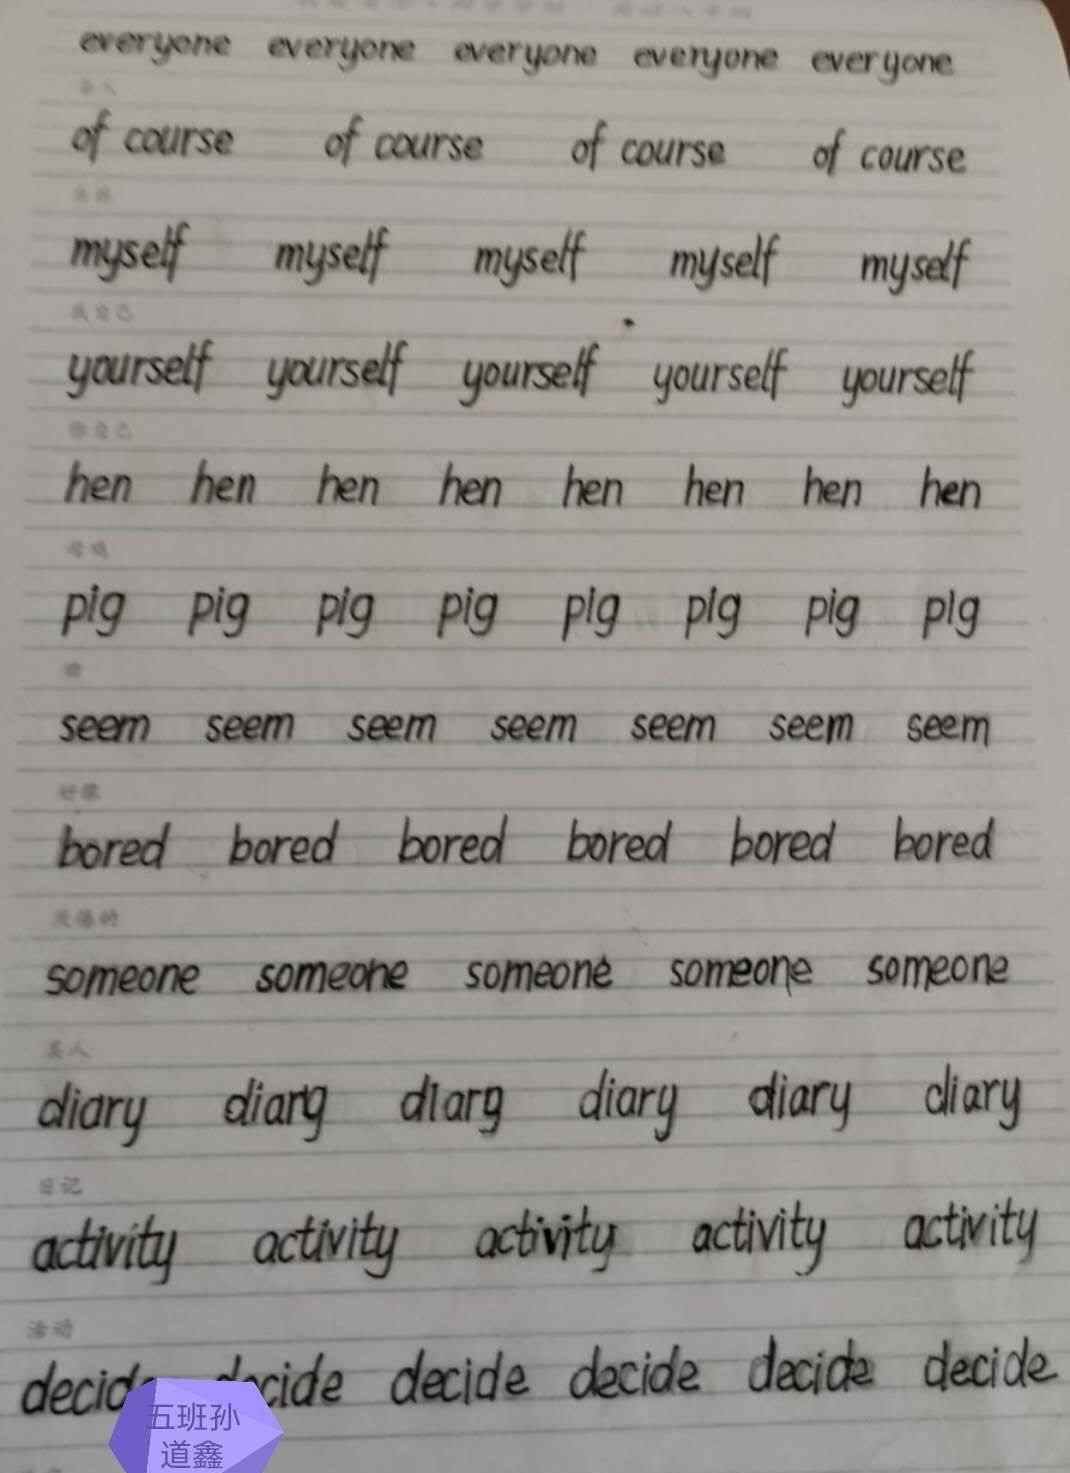 everyone everyone everyone everyone everyone
of course of course of course of course
myself myself myself myself myself
我自己
yourself yourself yourself yourself yourself
你自己
hen hen hen hen hen hen hen hen
母鸡
pig pig pig pig pig pig pig pig
seem seem seem seem seem seem seem
好像
bored bored bored bored bored bored
厌倦的
someone someone someone someone someone
某人
diary diarg diarg diary diary diary
日记
activity activity activity activity activity
活动
decide decide decide decide decide decide
五班孙
道鑫